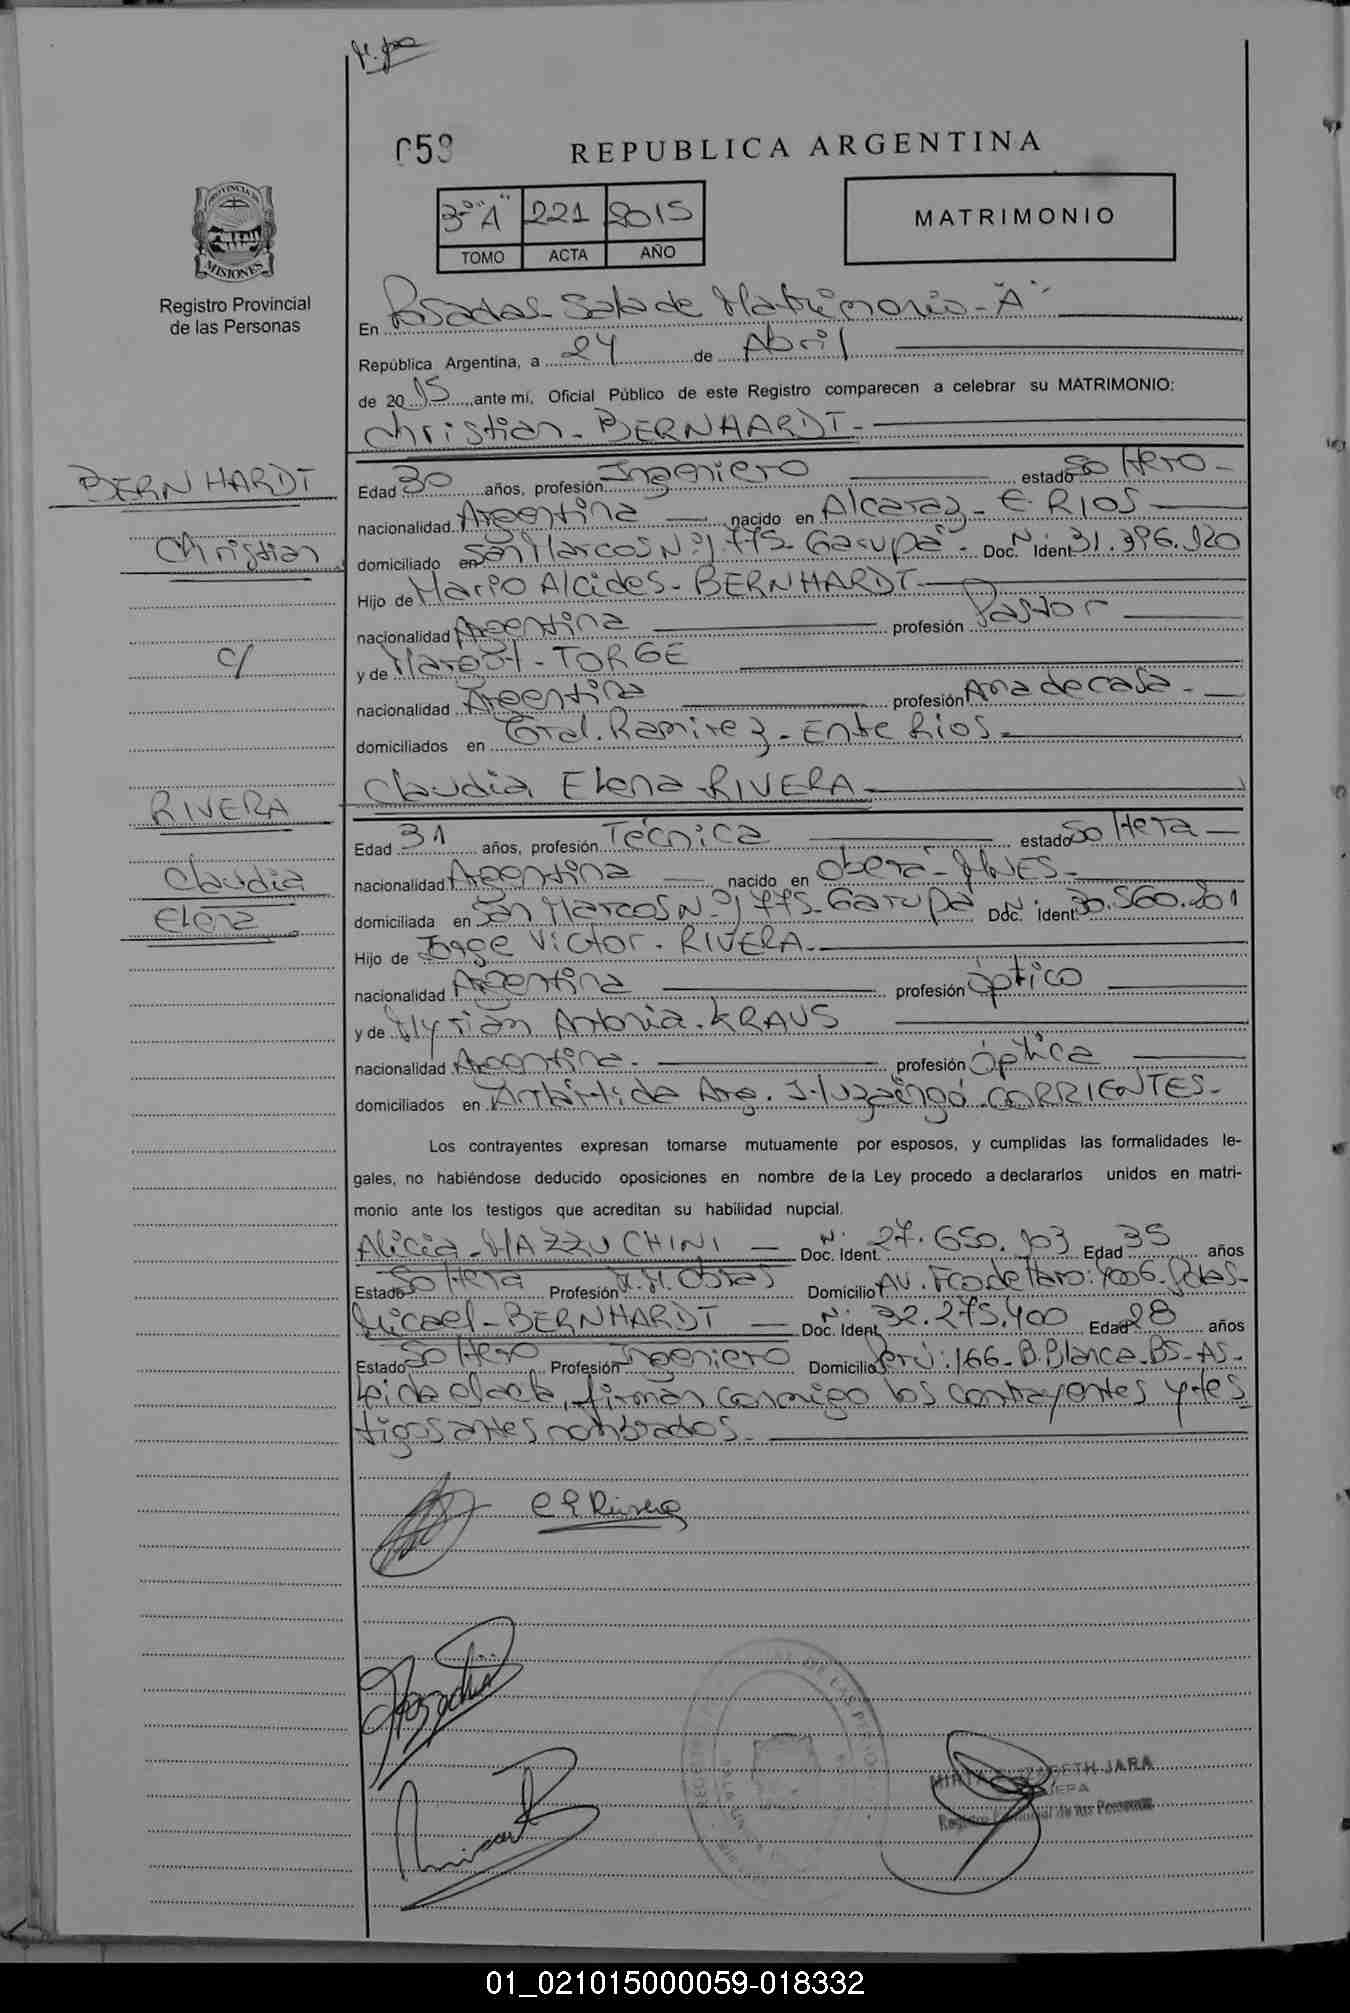 059
REPUBLICA ARGENTINA
3º "A" 221 2015
TOMO ACTA AÑO
MATRIMONIO
PROVINCIA DE
MISIONES
Registro Provincial
de las Personas
En Posadas - Sala de Matrimonio - "A"
República Argentina, a 24 de Abril
de 2015, ante mi, Oficial Público de este Registro comparecen a celebrar su MATRIMONIO:
Christian - BERNHARDT -
BERNHARDT
Christian
c/
RIVERA
Claudia
Elena
Edad 30 años, profesión Ingeniero estado Soltero -
nacionalidad Argentina nacido en Alcaraz - E. RIOS
domiciliado en San Marcos Nº 1775 - Garupá - Doc. Nº Ident 31.396.920
Hijo de Mario Alcides - BERNHARDT
nacionalidad Argentina profesión Pastor
y de Margot - TORGE
nacionalidad Argentina profesión Ama de casa -
domiciliados en Gral. Ramirez - Entre Rios -
Claudia Elena - RIVERA
Edad 31 años, profesión Técnica estado Soltera
nacionalidad Argentina nacido en Oberá - MNES -
domiciliada en San Marcos Nº 1775 - Garupá Doc. Nº Ident. 30.560.201
Hijo de Jorge Victor - RIVERA
nacionalidad Argentina profesión óptico
y de Myrian Antonia - KRAUS
nacionalidad Argentina - profesión óptica
domiciliados en Antártida Arg. Ituzaingó - CORRIENTES -
Los contrayentes expresan tomarse mutuamente por esposos, y cumplidas las formalidades le-
gales, no habiéndose deducido oposiciones en nombre de la Ley procedo a declararlos unidos en matri-
monio ante los testigos que acreditan su habilidad nupcial.
Alicia - MAZZUCHINI Doc. Nº Ident. 27.650.103 Edad 35 años
Estado Soltera Profesión M.M. Obras Domicilio AV. Fco de Haro: 4006 - Pdas -
Micael - BERNHARDT Doc. Nº Ident. 32.275.400 Edad 28 años
Estado Soltero Profesión Ingeniero Domicilio Perú: 166 - B. Blanca - BS - AS -
Leida el acta, firman conmigo los contrayentes y tes
tigos antes nombrados.
C E Rivera
JARA
JEFA
Registro Provincial de las Personas
01_021015000059-018332